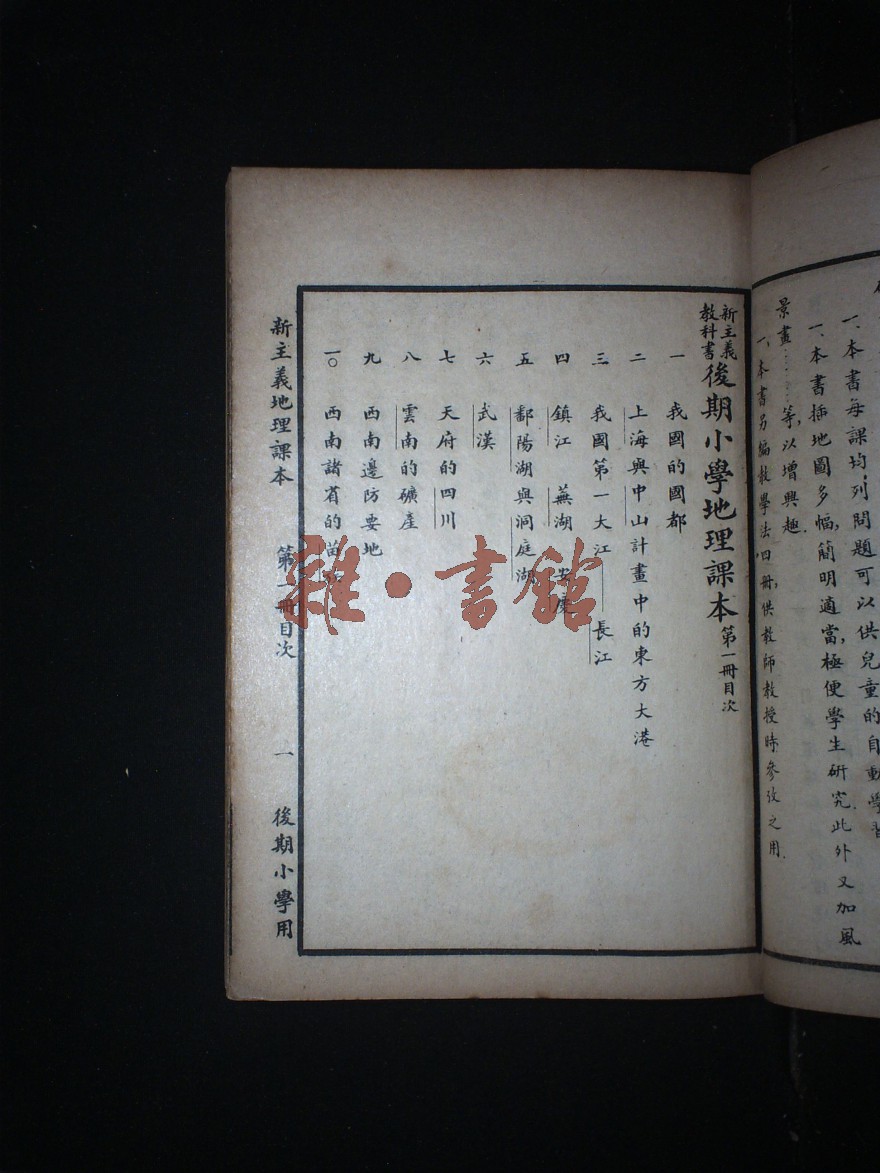 一、本書每課均列問題可以供兒童的自動學習
一、本書插地圖多幅，簡明適當，極便學生研究。此外又加風
景畫………等，以增興趣．
一、本書另編教學法四冊，供教師教授時參攷之用．
新主義教科書 後期小學地理課本 第一冊目次
一　我國的國都
二　上海與中山計畫中的東方大港
三　我國第一大江——長江
四　鎮江　蕪湖　安慶
五　鄱陽湖與洞庭湖
六　武漢
七　天府的四川
八　雲南的礦產
九　西南邊防要地
一〇　西南諸省的苗
新主義地理課本　第一冊目次　一　後期小學用
雜·書館